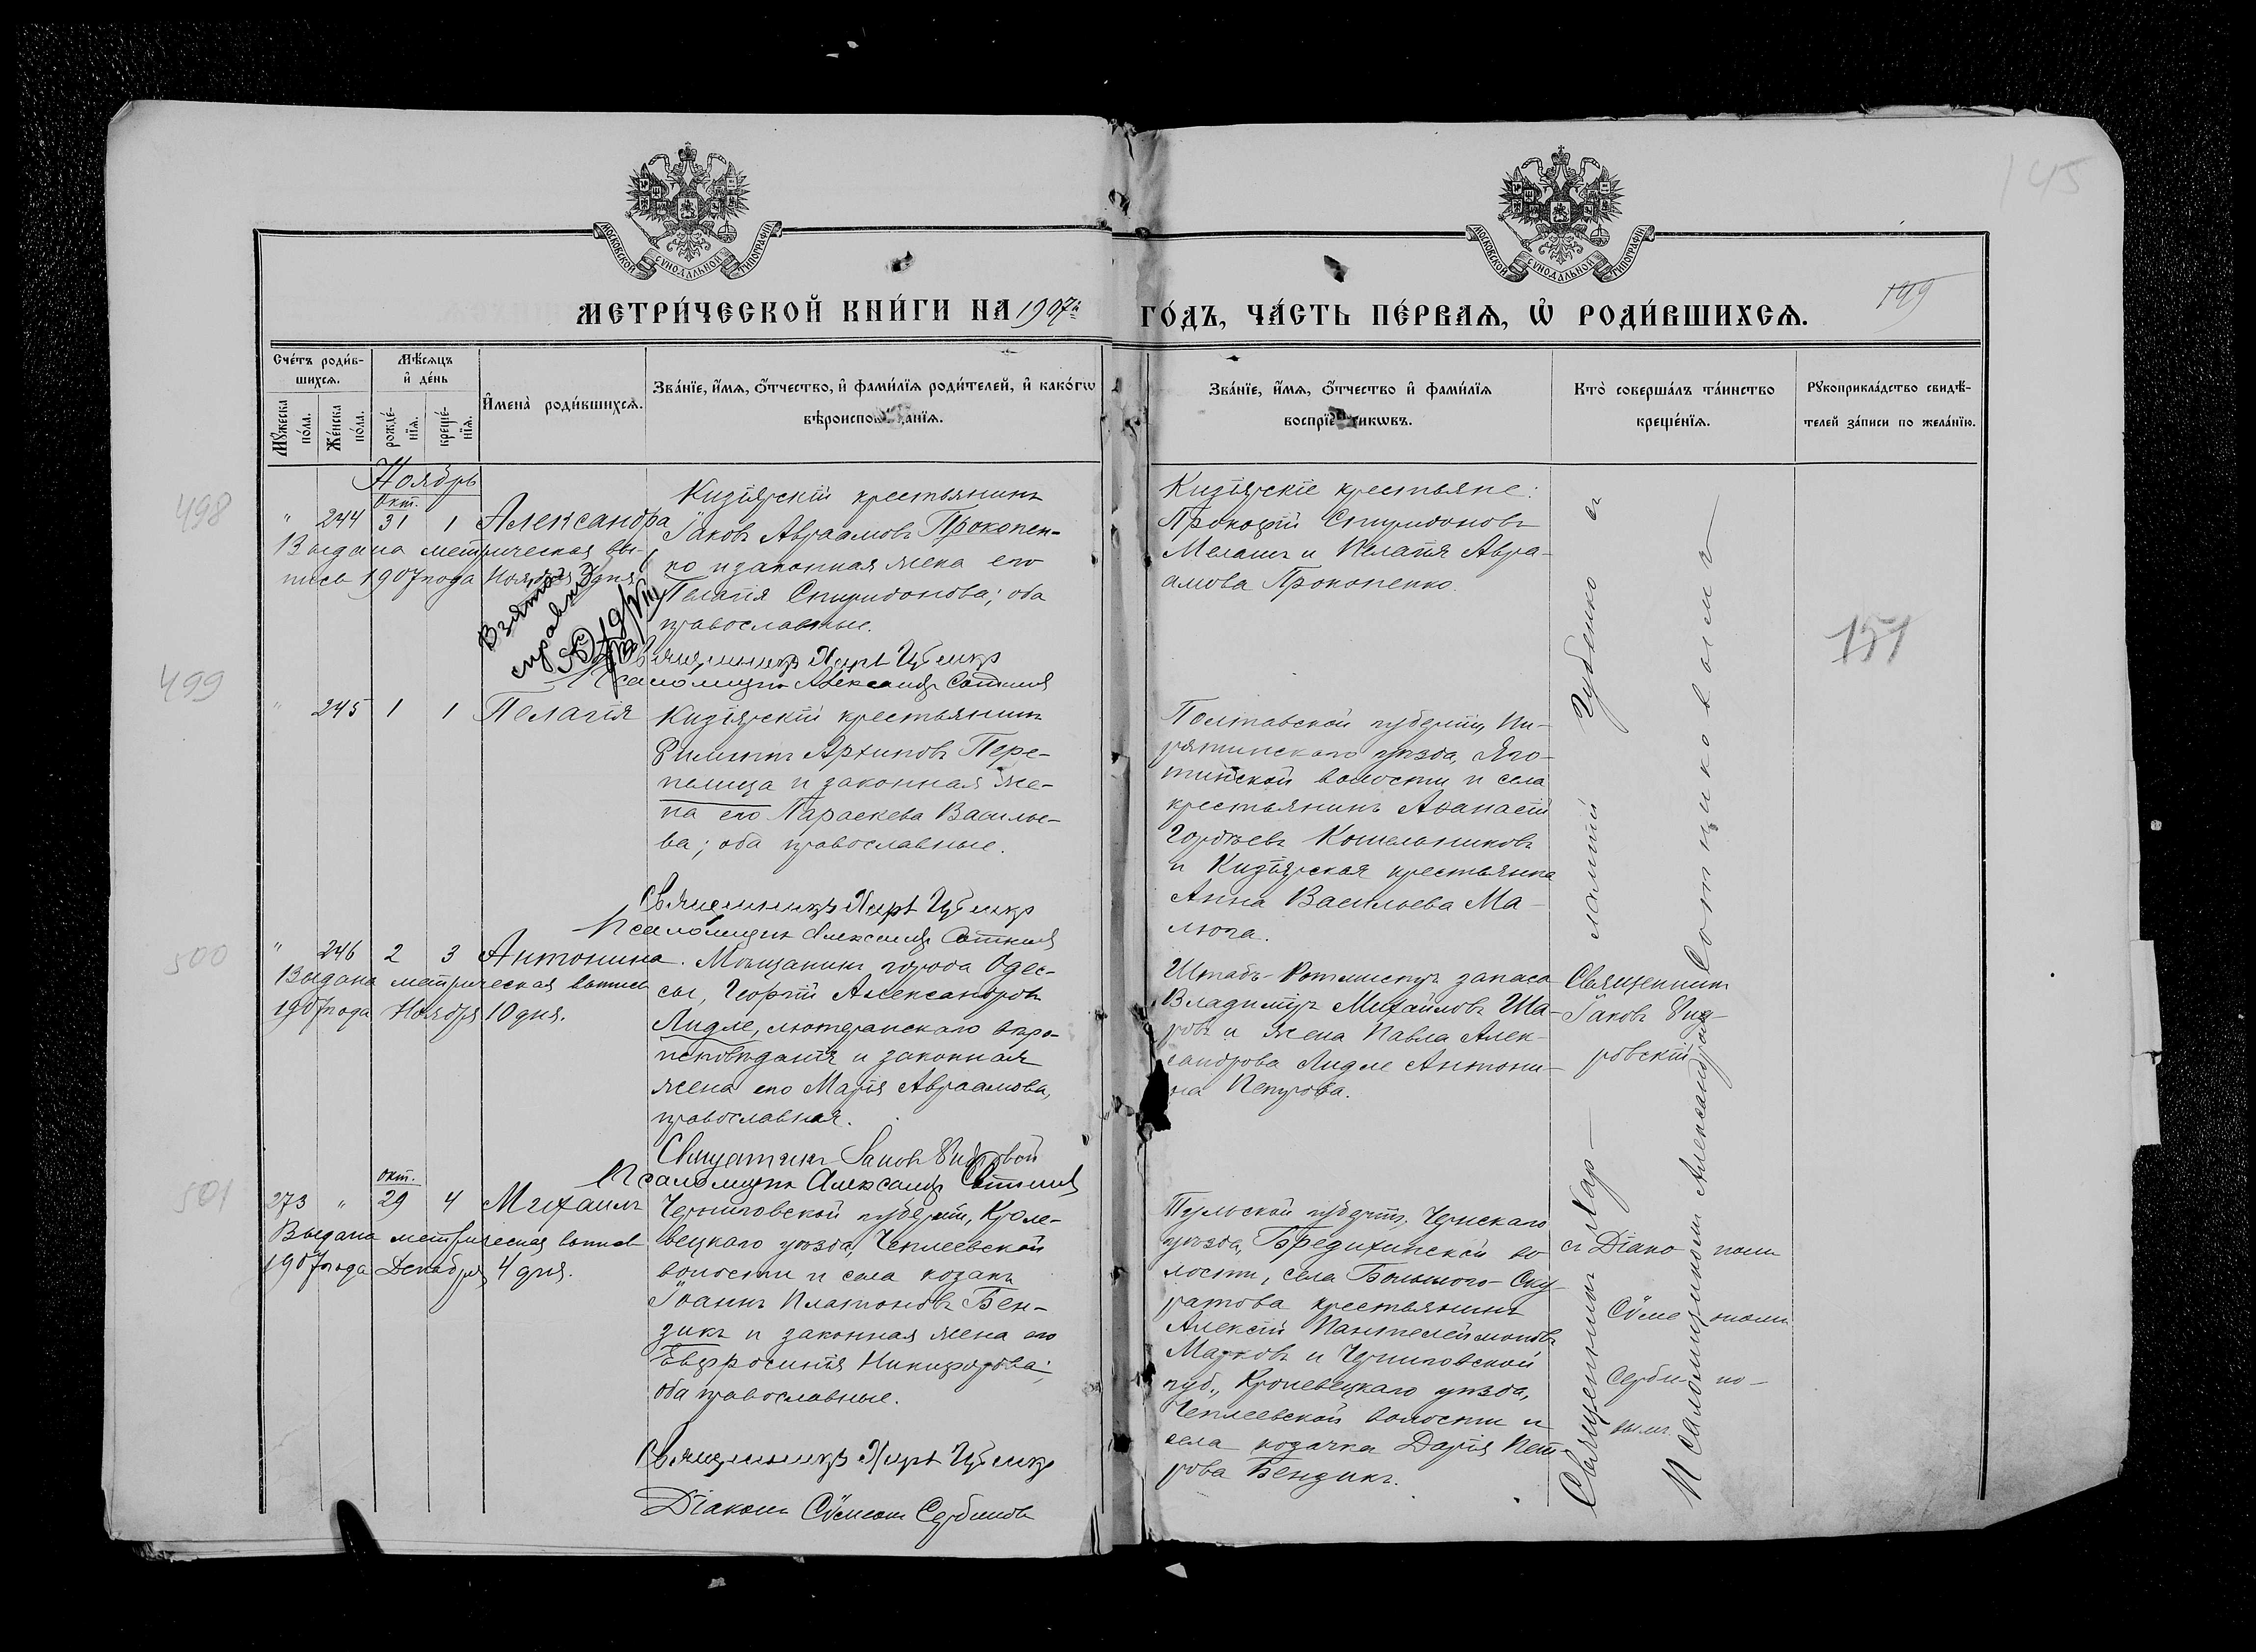 145
МОСКОВСКОЙ СѴНОДАЛЬНОЙ ТИПОГРАФІИ
МОСКОВСКОЙ СѴНОДАЛЬНОЙ ТИПОГРАФІИ
МЕТРИ́ЧЕСКОЙ КНИ́ГИ НА 1907й
ГО́ДЪ, ЧА́СТЬ ПЕ́РВАѦ, Ѡ҆ РОДИ́ВШИХСѦ.
149
Сче́тъ роди́в-
шихсѧ.
Мꙋ́жеска
по́ла.
Же́нска
по́ла.
Мѣ́сѧцъ
и҆ де́нь
рожде́-
нїѧ.
креще́-
нїѧ.
И҆мена̀ роди́вшихсѧ.
Зва́нїе, и҆́мѧ, ѻ҆́тчество, и҆ фами́лїѧ роди́телей, и҆ како́гѡ
вѣроиспов анїѧ.
Зва́нїе, и҆́мѧ, ѻ҆́тчество и҆ фами́лїѧ
воспрїе икѡвъ.
Кто̀ соверша́лъ та́инство
креще́нїѧ.
Рꙋкоприкла́дство свидѣ́-
телей за́писи по жела́нїю.
Ноябрь
498
" 244
Окт.
31 1 Александра
Выдана метрическая вы-
пись 1907 года Ноября 3 дня
Взята
справка
Кизіярскій крестьянинъ
Іаковъ Авраамовъ Прокопен-
ко и законная жена его
Пелагія Спиридонова; оба
православные.
Священникъ Хар
Псаломщикъ Александръ Сотник
Кизіярскіе крестьяне:
Прокофій Спиридоновъ
и Пелагія Авра-
амова Прокопенко.
151
499
" 245 1 1 Пелагія
Кизіярскій крестьянинъ
Филиппъ Архиповъ Пере-
пелица и законная же-
на его Параскева Василье-
ва; оба православные.
Священникъ Хар
Псаломщикъ Александръ Сотник
Полтавской губерніи, Пи-
рятинскаго уѣзда, Яго-
тинской волости и села
крестьянинъ Аѳанасій
Гордѣевъ Кошельниковъ
и Кизіярская крестьянка
Анна Васильева Ма-
люга.
500
" 246 2 3 Антонина.
Выдана метрическая выпись
1907 года Ноября 10 дня.
Мѣщанинъ города Одес-
сы, Георгій Александровъ
Лидле, лютеранскаго вѣро-
исповѣданія и законная
жена его Марія Авраамова,
православная.
Священникъ Іаковъ
Псаломщикъ Александръ Сотник
Штабъ-Ротмистръ запаса
Владиміръ Михайловъ Ша-
ровъ и жена Павла Алек-
сандрова Лидле Антони-
на Петрова.
Священникъ
Іаковъ
ровскій
501
273 "
окт.
29 4 Михаилъ
Выдана метрическая выпись
1907 года Декабря 4 дня.
Черниговской губерніи, Кроле-
вецкаго уѣзда, Чеплеевской
волости и села козакъ
Іоаннъ Платоновъ Бен-
дикъ и законная жена его
Евфросинія Никифорова;
оба православные.
Священникъ Хар
Діаконъ Сѵмеонъ Сербиновъ
Тульской губерніи, Чернскаго
уѣзда, Бредихинской во-
лости, села Большого-Ску-
ратова крестьянинъ
Алексій Пантелеймоновъ
Марковъ и Черниговской
губ., Кролевецкаго уѣзда,
Чеплеевской волости и
села козачка Дарія Пет-
рова Бендикъ.
Священникъ Хар-
лампій Чубенко съ
Псаломщикомъ Александромъ Сотниковымъ
съ Діако номъ
Сѵме ономъ
Серби но-
вымъ.